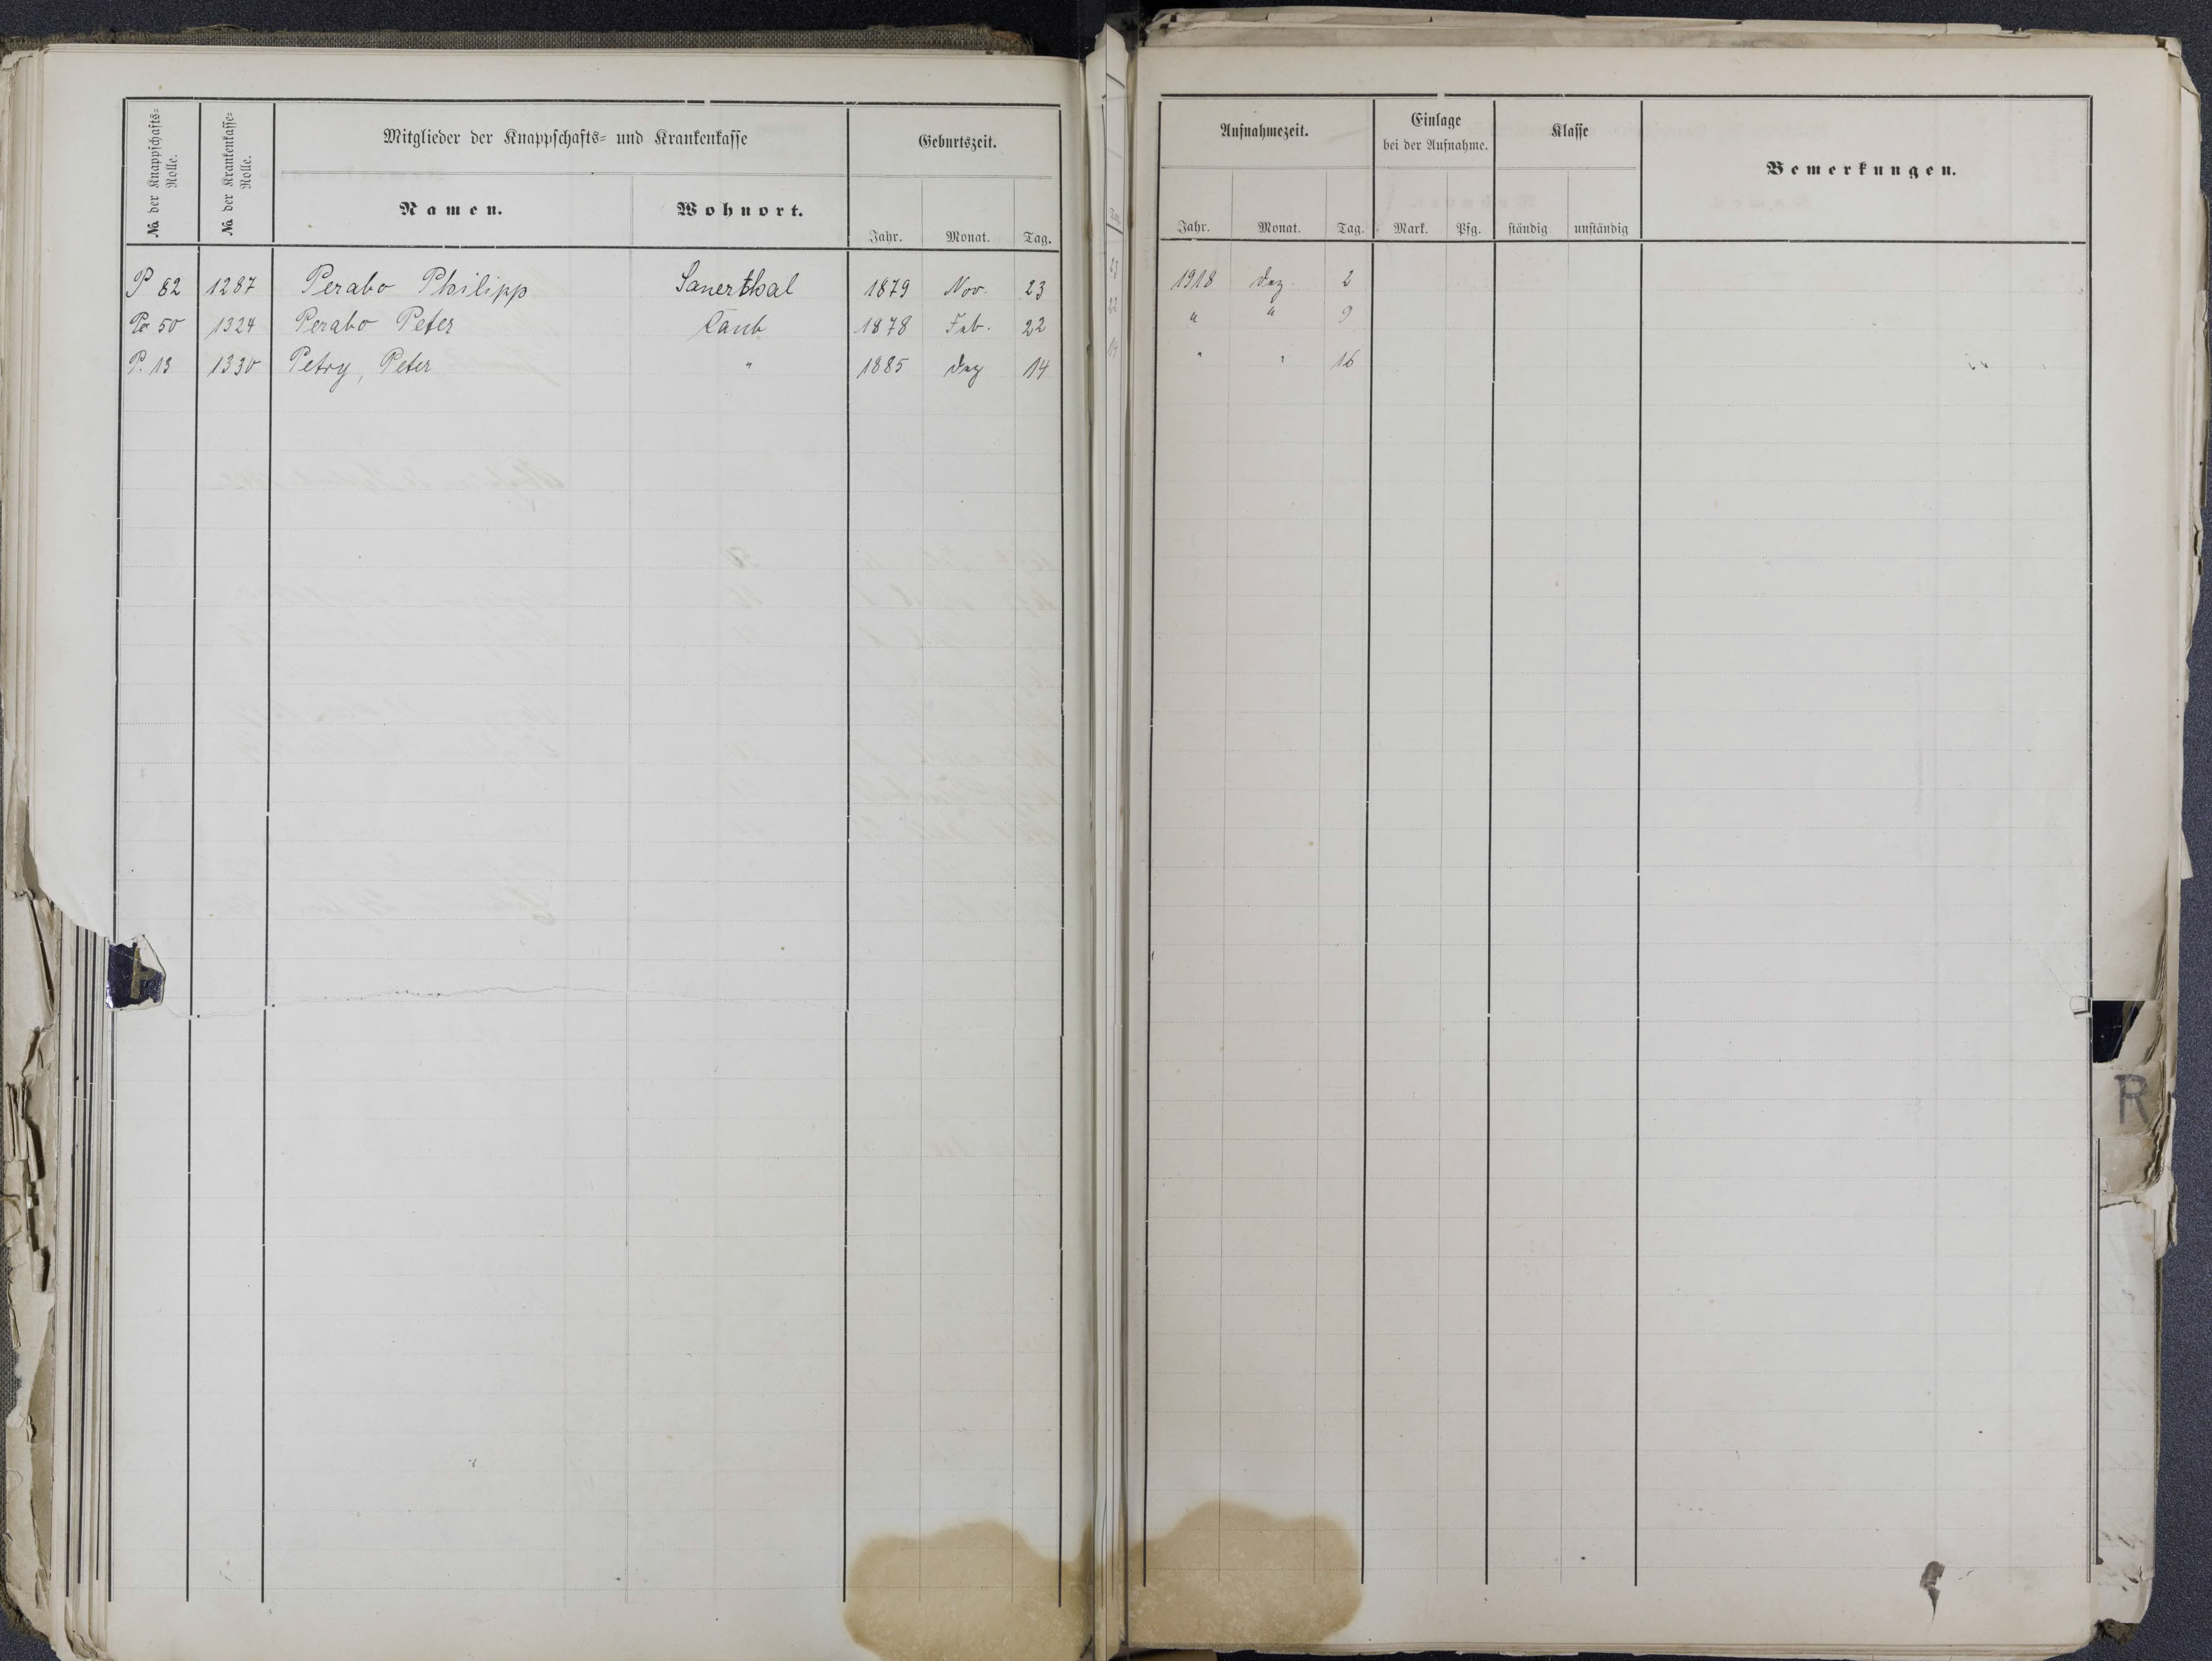 No. der Knappschafts-Rolle.
No. der Krankenkasse-Rolle.
Mitglieder der Knappschafts- und Krankenkasse
Namen.
Wohnort.
Geburtszeit.
Jahr. Monat. Tag.
Aufnahmezeit.
Jahr. Monat. Tag.
Einlage
bei der Aufnahme.
Mark. Pfg.
Klasse
ständig unständig
Bemerkungen.
P 82 1287 Perabo Philipp Sauerthal 1879 Nov. 23 1918 Dez. 2
50 1324 Perabo Peter Caub 1878 Feb. 22 " " 9
P. 13 1330 Petry, Peter " 1885 Dez 14 " " 16
R